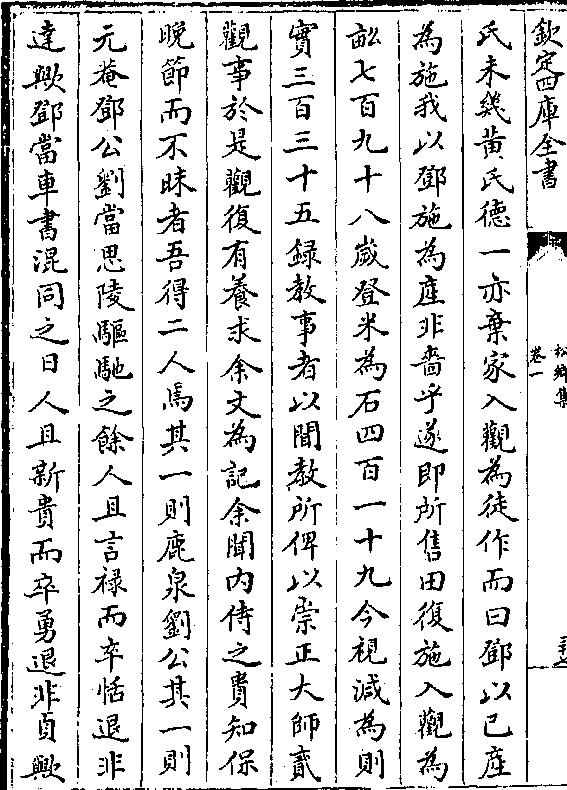 欽定四庫全書
松鄉集
卷一
氏未幾黃氏德一亦棄家入觀為徒作而曰鄧以已産
為施我以鄧施為産非嗇乎遂即所售田復施入觀為
畝七百九十八歲登米為石四百一十九今視減為則
實三百三十五録教事者以聞教所俾以崇正大師貳
觀事於是觀復有養求余文為記余聞內侍之貴知保
晚節而不昧者吾得二人焉其一則鹿泉劉公其一則
元菴鄧公劉當思陵驅馳之餘人且言禄而卒恬退非
達歟鄧當車書混同之日人且新貴而卒勇退非貞歟